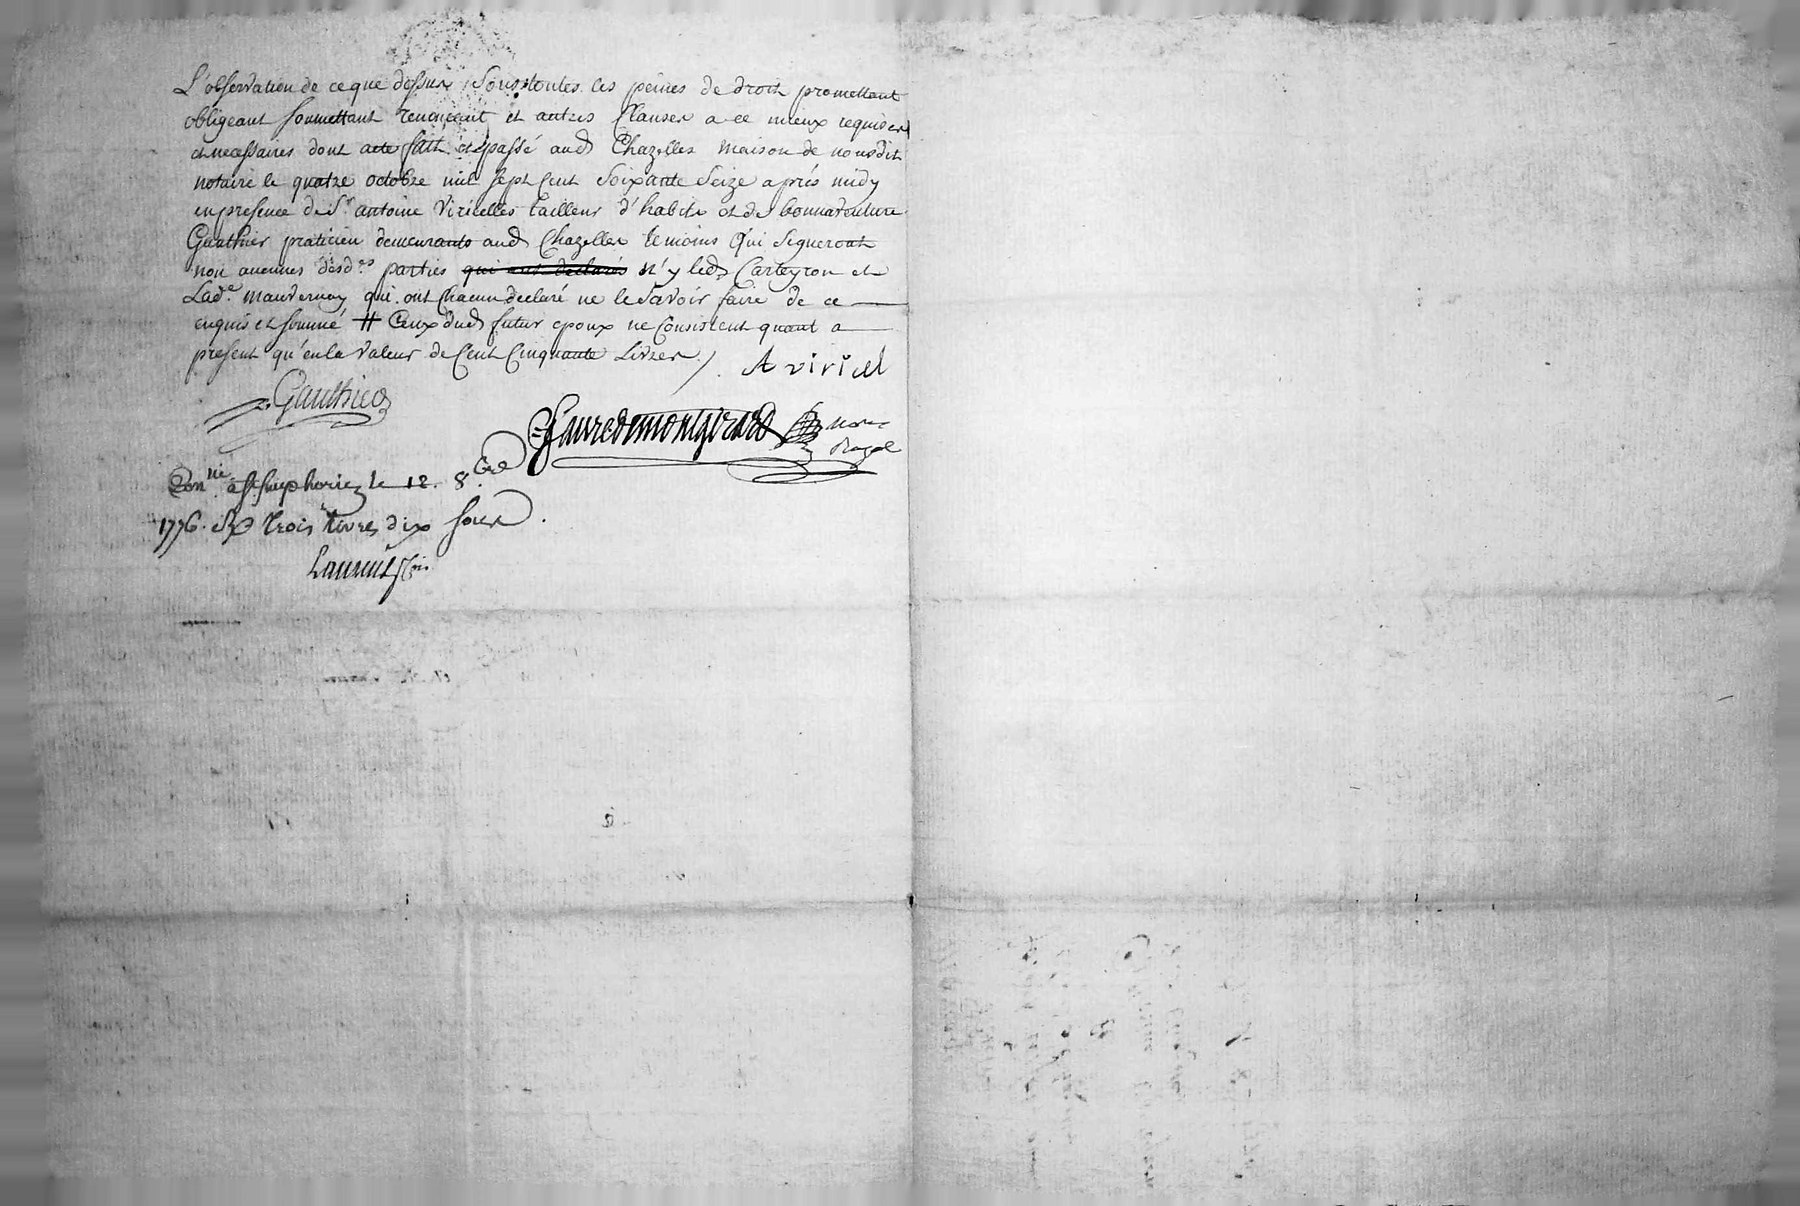 L'observation de ce que dessus, sous toutes les peines de droit promettant
obligeant soumettant renonçant et autres Clauses a ce mieux requises
et necessaires dont acte fait et passé aud Chazelles maison de nousdit
notaire le quatre octobre mil sept Cent soixante seize aprés midy
en presence de Sr antoine Viricelles tailleur d'habits et de bonnaventure
Gauthier praticien demeurants aud Chazelles temoins Qui signeront
non aucunes desd.es parties qui ont declarés N'y led Carteyron et
Lad.e mauvernay qui ont Chacun declaré ne le savoir faire de ce
enquis et sommé # Ceux dud futur epoux ne Consistent quant a
present qu'en la valeur de Cent Cinquante Livres./.
A viricel
Gauthier
Fauredemontgirard
nore
Royal
Con.né a St simphorien le 12. 8.bre
1776. R trois livres dix sous.
Laurent